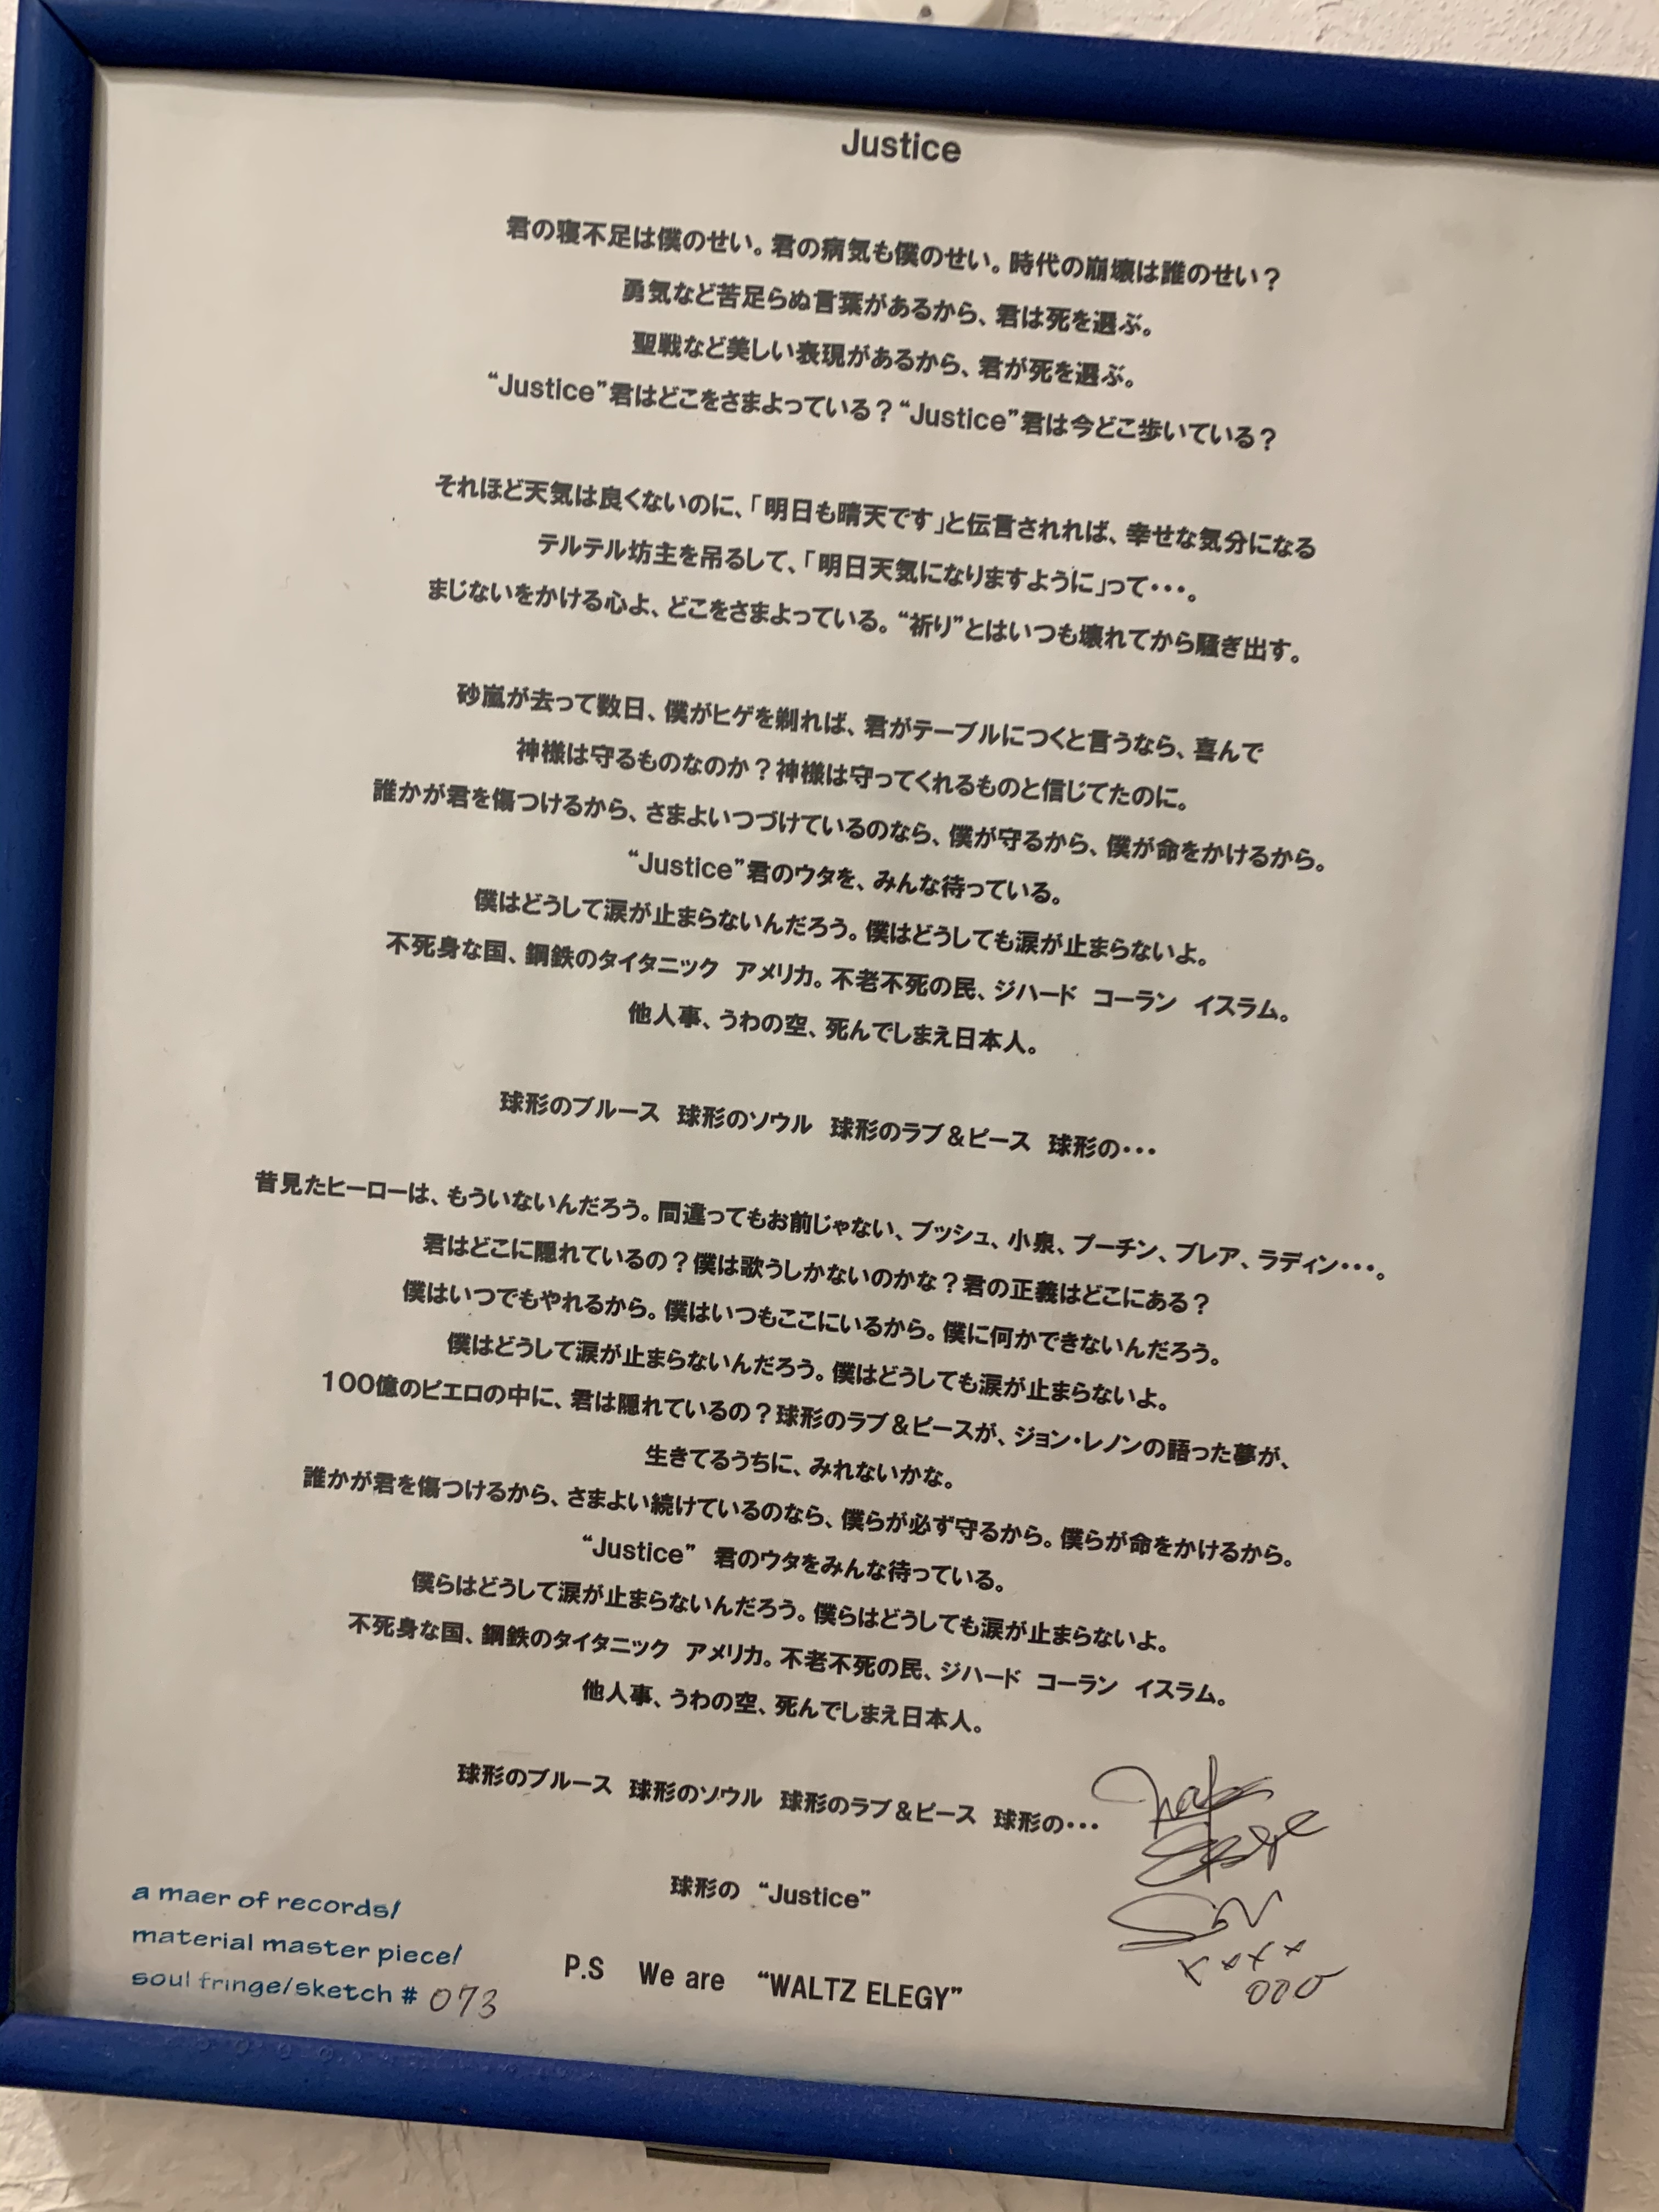 Justice
君の寝不足は僕のせい。君の病気も僕のせい。時代の崩壊は誰のせい？
勇気など苦足らぬ言葉があるから、君は死を選ぶ。
聖戦など美しい表現があるから、君が死を選ぶ。
“Justice”君はどこをさまよっている？“Justice”君は今どこ歩いている？
それほど天気は良くないのに、「明日も晴天です」と伝言されれば、幸せな気分になる
テルテル坊主を吊るして、「明日天気になりますように」って･･･。
まじないをかける心よ、どこをさまよっている。“祈り”とはいつも壊れてから騒ぎ出す。
砂嵐が去って数日、僕がヒゲを剃れば、君がテーブルにつくと言うなら、喜んで
神様は守るものなのか？神様は守ってくれるものと信じてたのに。
誰かが君を傷つけるから、さまよいつづけているのなら、僕が守るから、僕が命をかけるから。
“Justice”君のウタを、みんな待っている。
僕はどうして涙が止まらないんだろう。僕はどうしても涙が止まらないよ。
不死身な国、鋼鉄のタイタニック　アメリカ。不老不死の民、ジハード　コーラン　イスラム。
他人事、うわの空、死んでしまえ日本人。
球形のブルース　球形のソウル　球形のラブ＆ピース　球形の･･･
昔見たヒーローは、もういないんだろう。間違ってもお前じゃない、ブッシュ、小泉、プーチン、ブレア、ラディン･･･。
君はどこに隠れているの？僕は歌うしかないのかな？君の正義はどこにある？
僕はいつでもやれるから。僕はいつもここにいるから。僕に何かできないんだろう。
僕はどうして涙が止まらないんだろう。僕はどうしても涙が止まらないよ。
100億のピエロの中に、君は隠れているの？球形のラブ＆ピースが、ジョン・レノンの語った夢が、
生きてるうちに、みれないかな。
誰かが君を傷つけるから、さまよい続けているのなら、僕らが必ず守るから。僕らが命をかけるから。
“Justice”　君のウタをみんな待っている。
僕らはどうして涙が止まらないんだろう。僕らはどうしても涙が止まらないよ。
不死身な国、鋼鉄のタイタニック　アメリカ。不老不死の民、ジハード　コーラン　イスラム。
他人事、うわの空、死んでしまえ日本人。
球形のブルース　球形のソウル　球形のラブ＆ピース　球形の･･･
球形の　“Justice”
P.S　We are　“WALTZ ELEGY”
a maer of records/
material master piece/
soul fringe/sketch # 073